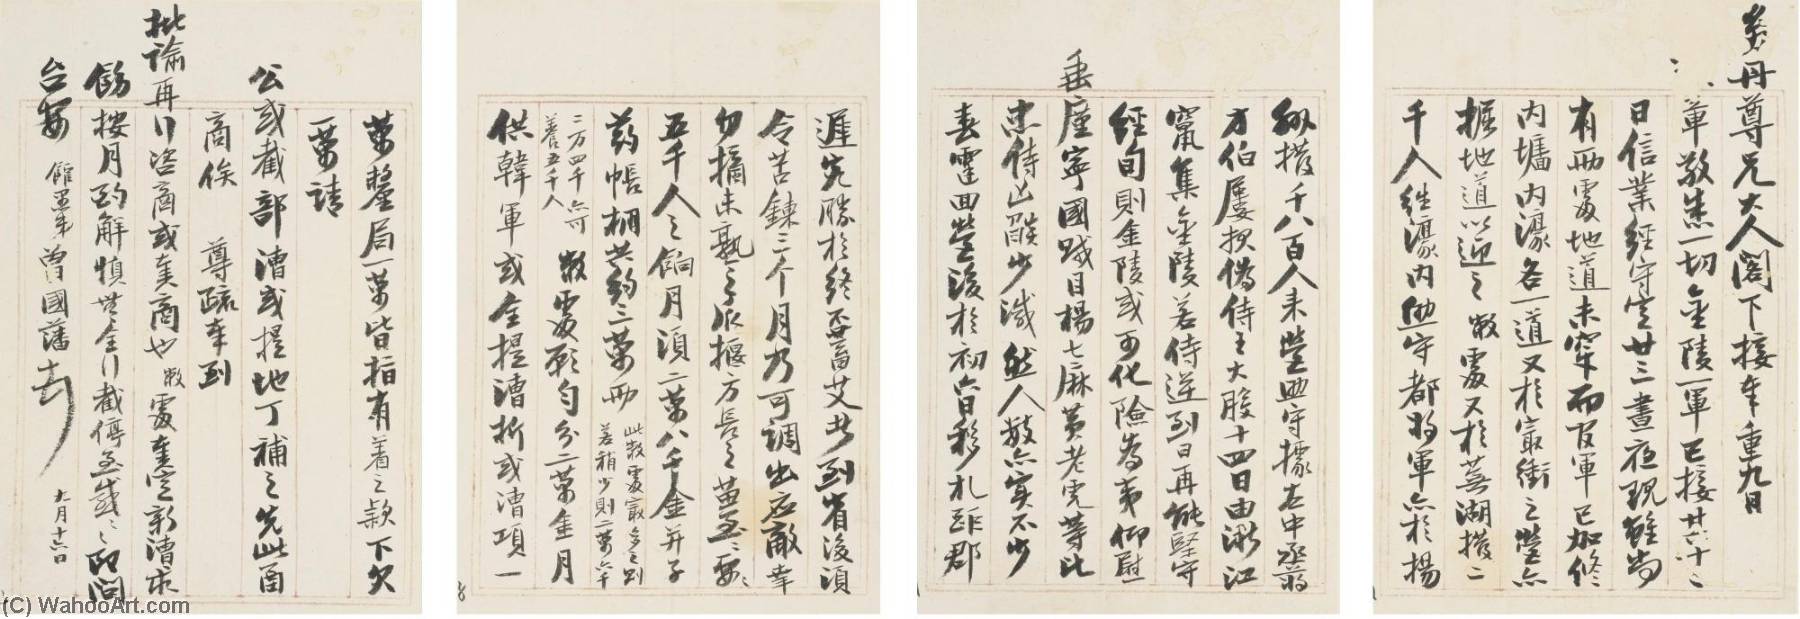 炎丹尊兄大人閣下接奉重九日
華敬悉一切金陵一軍已接廿六十之
日信業經守定廿三晝夜現雖尚
有兩處地道未穿而官軍已加修
內墻內濠各一道又於最衝之營六
掘地道以迎之敝處又於蕪湖撥二
千人往濠內助守都將軍亦於揚
撥千八百人來營助守據左中丞蔣
方伯屢損偽侍王大股十四日由浙江
竄集金陵若侍逆到日再能堅守
經旬則金陵或可化險為夷仰慰
垂廑寧國賊目楊七麻黃老虎等比
忠侍凶燄少減然人數亦實不少
春霆回營後於初六日移扎距郡
遲先勝於終不畜艾者到省後須
令苦鍊三个月乃可調出應敵幸
勿摘未熟之瓜揠方長之苗至要
五千人之餉月須二萬八千金并子
藥帳棚共約三萬兩 此敝處最多之則 若稍少則二萬六千
二万四千亦可養五千人 敝處願勻分二萬金月
供韓軍或全提漕折或漕項一
萬釐局一萬皆指有著之款下欠
一萬請
公或截部漕或提地丁補之先此函
商俟 尊疏奉到
批諭再行咨商或奏商也敝處奏定新漕永
餉按月酌解慎無全行截停至感之即問
台安 館愚弟曾國藩頓首 九月十六日
(C) WahooArt.com